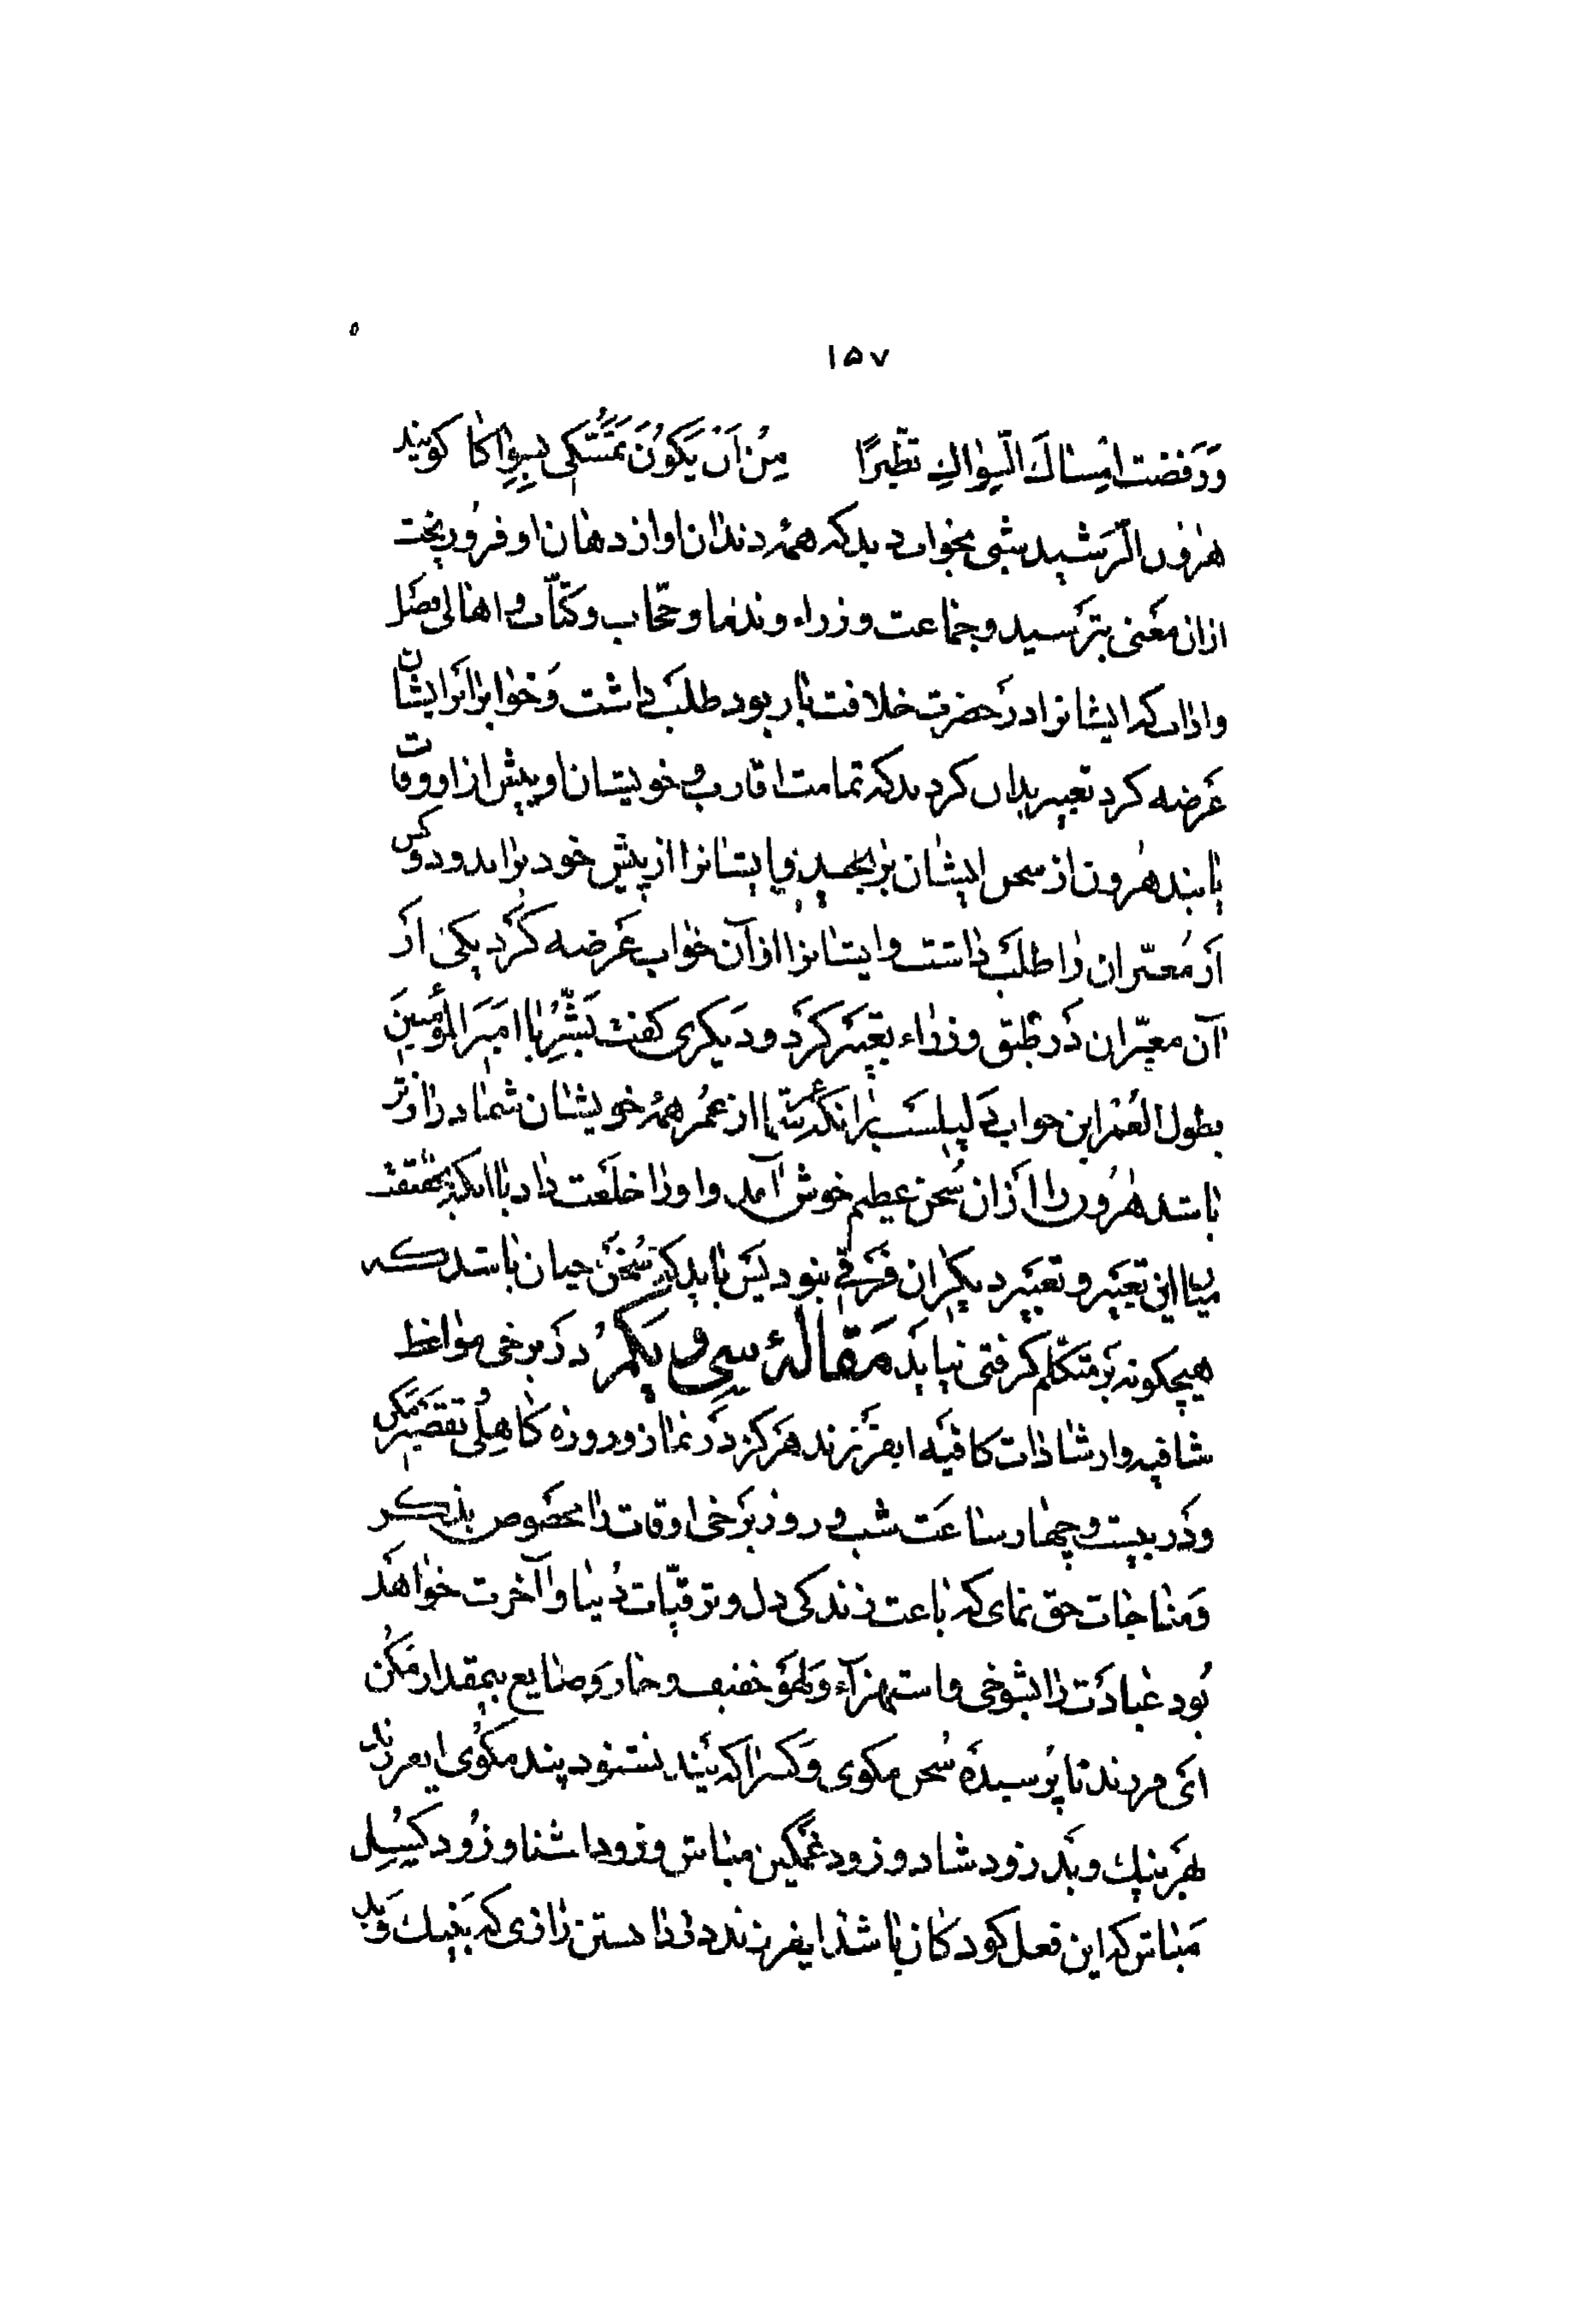 ۱۵۷
وَرَفضت امْساكَ السِّواكِ تطيّرًا مِنْ اَنْ يَكُونَ تَمَسُّكى بِسِواكا كويند
هرون الرشيد شبى بخواب ديد كه همهٔ دندان او از دهان او فرو ريخت
ازان معنى بترسيد و جماعت وزراء و ندما و حجّاب و كتّاب و اهالى فضل
و اداب كه ايشانرا در حضرت خلافت بار بود طلب داشت و خواب را بر ايشان
عرضه كرد تعبير بدان كردند كه تمامت اقارب و خويشان او پيش از او وفات
يابند هرون از سخن ايشان برنجيد و ايشانرا از پيش خود براند و دو كس
از معبّران را طلب داشت و ايشانرا از آن خواب عرضه كرد يكى از
آن معبّران در طبق وزراء تعبير كرد و ديكرى كفت بَشِّر يا اميرَ المؤمنينَ
بطول العُمر اين خواب دليلست برانكه عمر شما از عمر همهٔ خويشان شما درازتر
باشد هرون را ازان سخن عظيم خوش آمد و او را خلعت داد با انكه بحقيقت
ميان اين تعبير و تعبير ديكران فرقى نبود پس بايد كه سخن چنان باشد كه
هيچكونه بر متكلم كرفتى نيايد مقالهٔ سى و يكم در برخى مواعظ
شافيه و ارشادات كافيه ايفرزند هركز در نماز و روزه كاهلى و تقصير مكن
و در بيست و چهار ساعت شب و روز برخى اوقات را مخصوص بذكر
و مناجات حق نماى كه باعث زندكى دل و ترقيّات دنيا و آخرت خواهد
بود عبادت را بشوخى و استهزآء و لهو خفيف و خار و ضايع بيمقدار مكن
اى فرزند تا پرسيده سخن مكوى و كسرا كه پند نشنود پند مكوى ايفرزند
بهر نيك و بد زود شاد و زود غمكين مباش و زود اشنا و زود كسيل
مباش كه اين فعل كودكان باشد ايفرزند دان رازى كه بنيك و بد